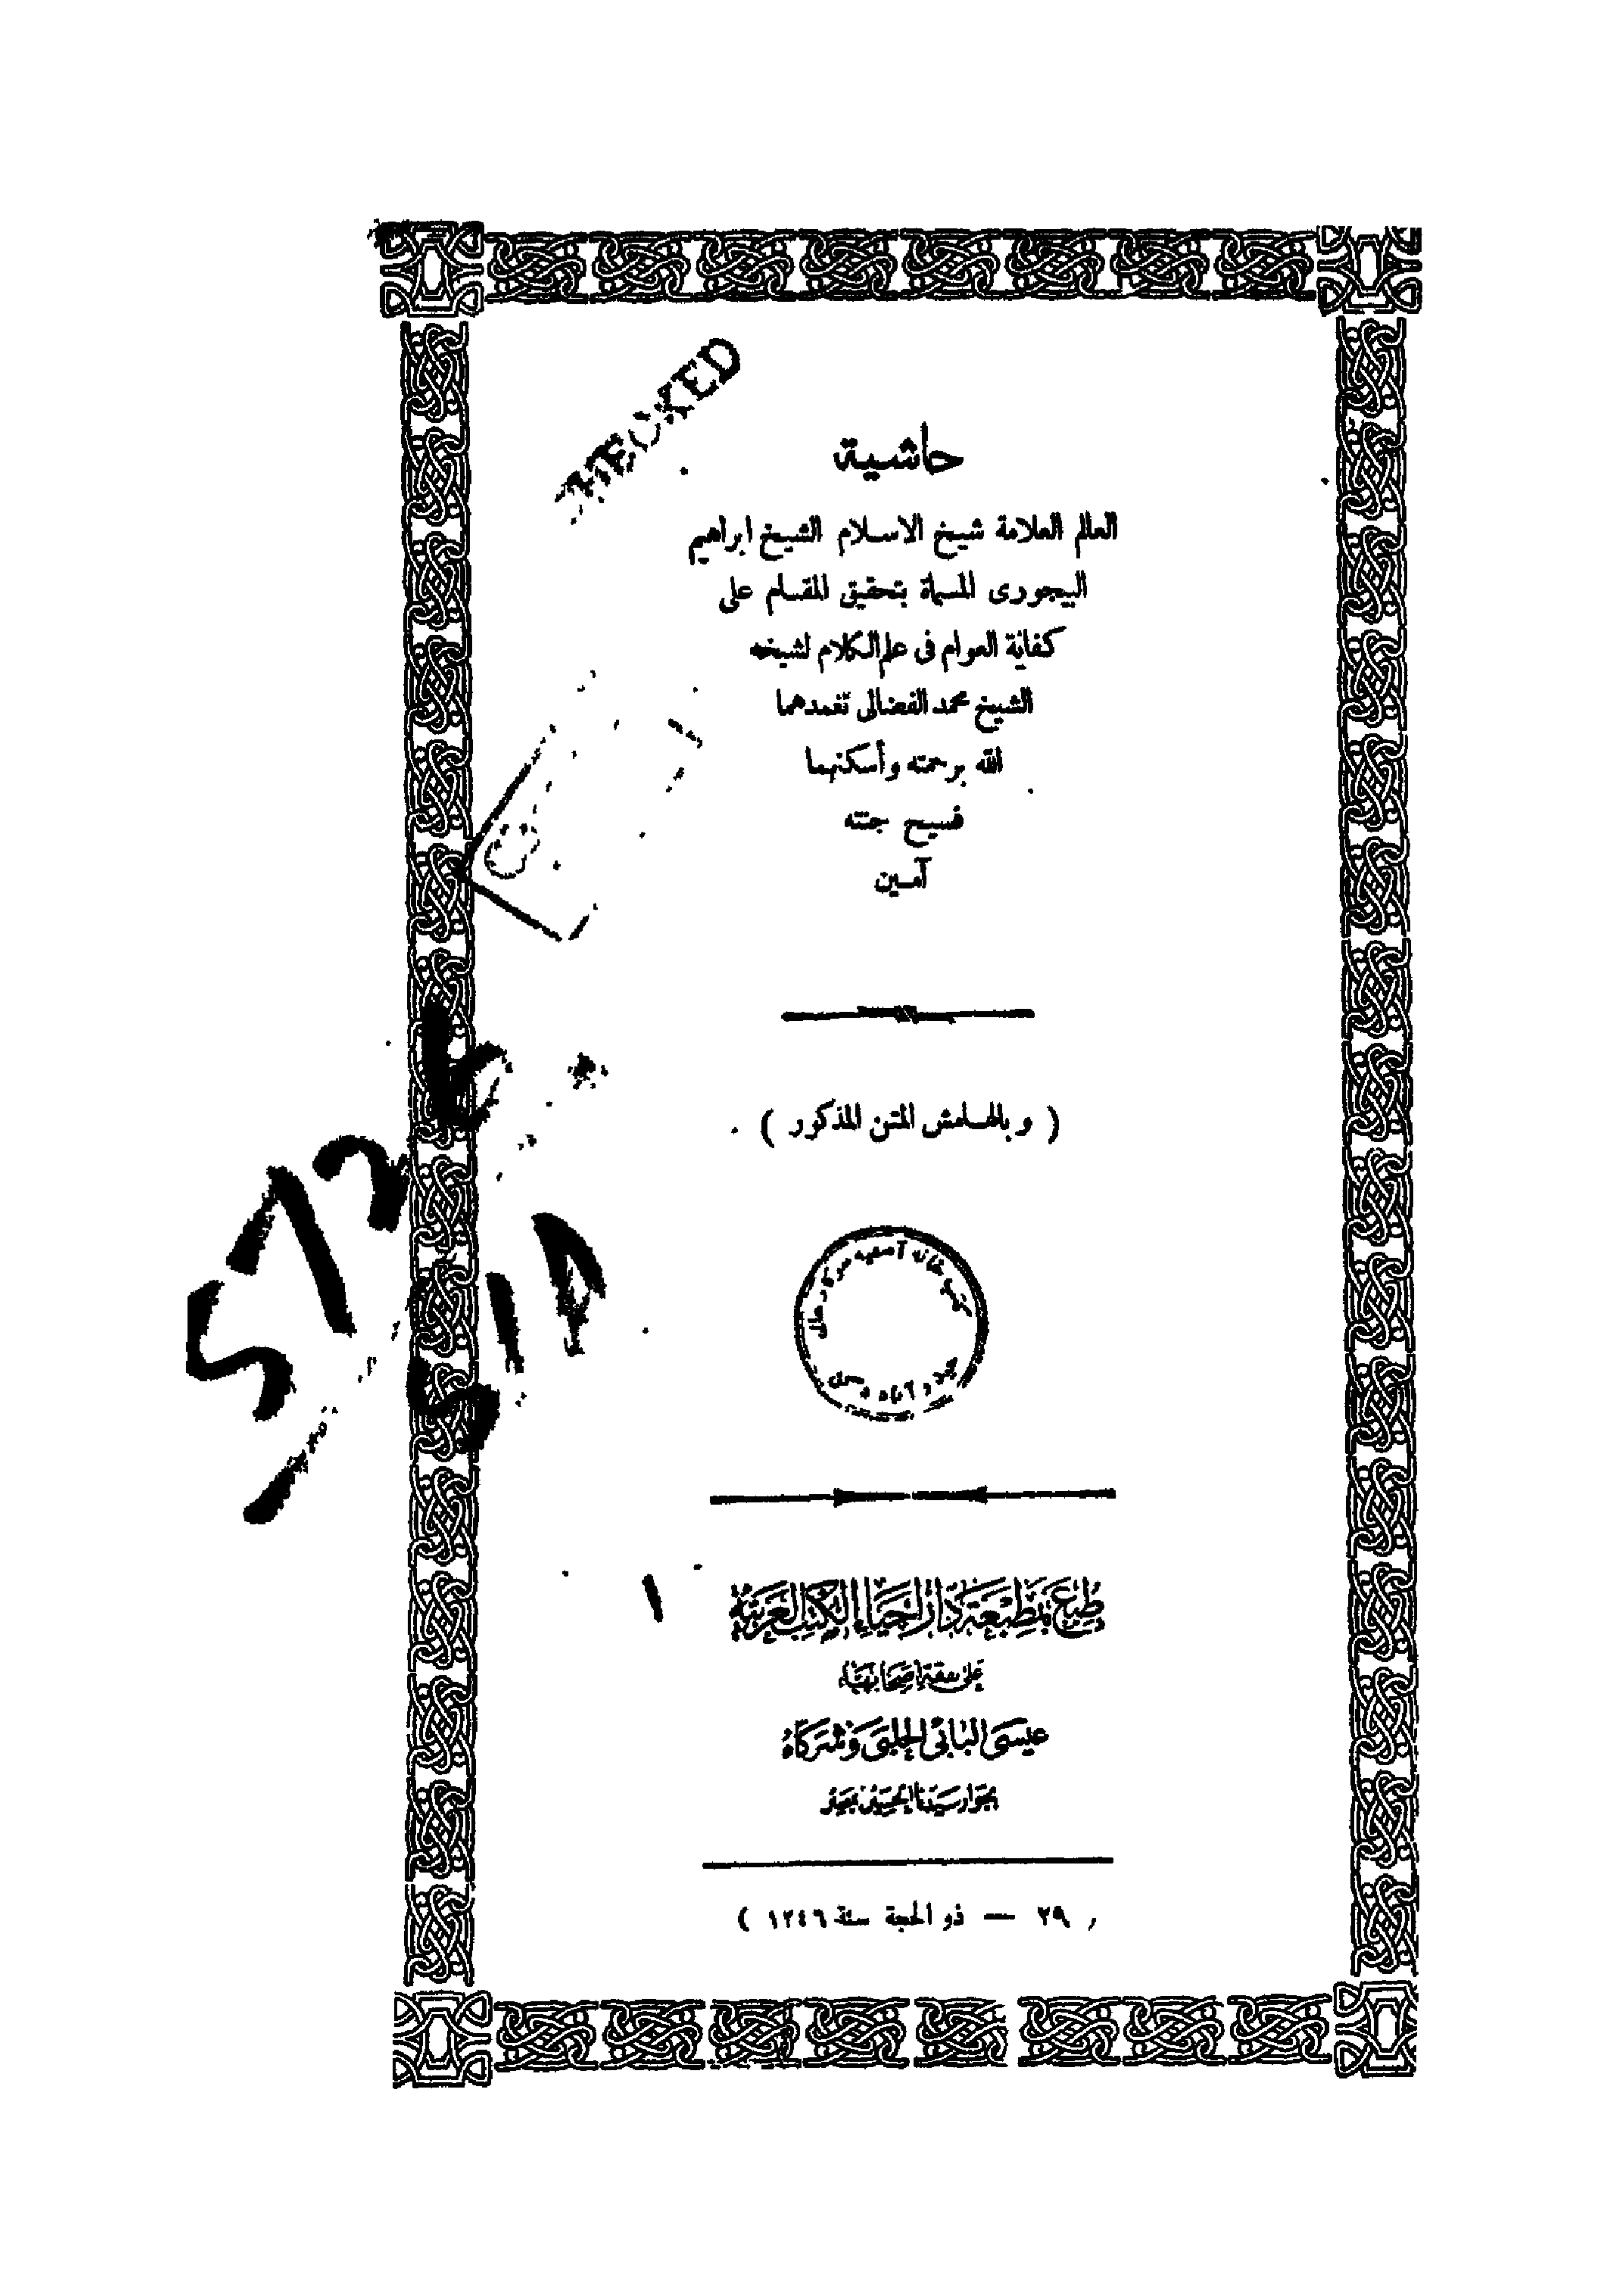 CHECKED
حاشية
العالم العلامة شيخ الاسلام الشيخ ابراهيم
البيجورى المسماة بتحقيق المقام على
كفاية العوام فى علم الكلام لشيخه
الشيخ محمد الفضالى تغمدهما
الله برحمته وأسكنهما
فسيح جنته
آمين
( وبالهامش المتن المذكور )
كتب خانه آصفيه سركار عالى
طبع بمطبعة دار إحياء الكتب العربية
على نفقة أصحابها
عيسى البابى الحلبى وشركاه
بجوار سيدنا الحسين بمصر
٢٩ — ذو الحجة سنة ١٢٤٦ )